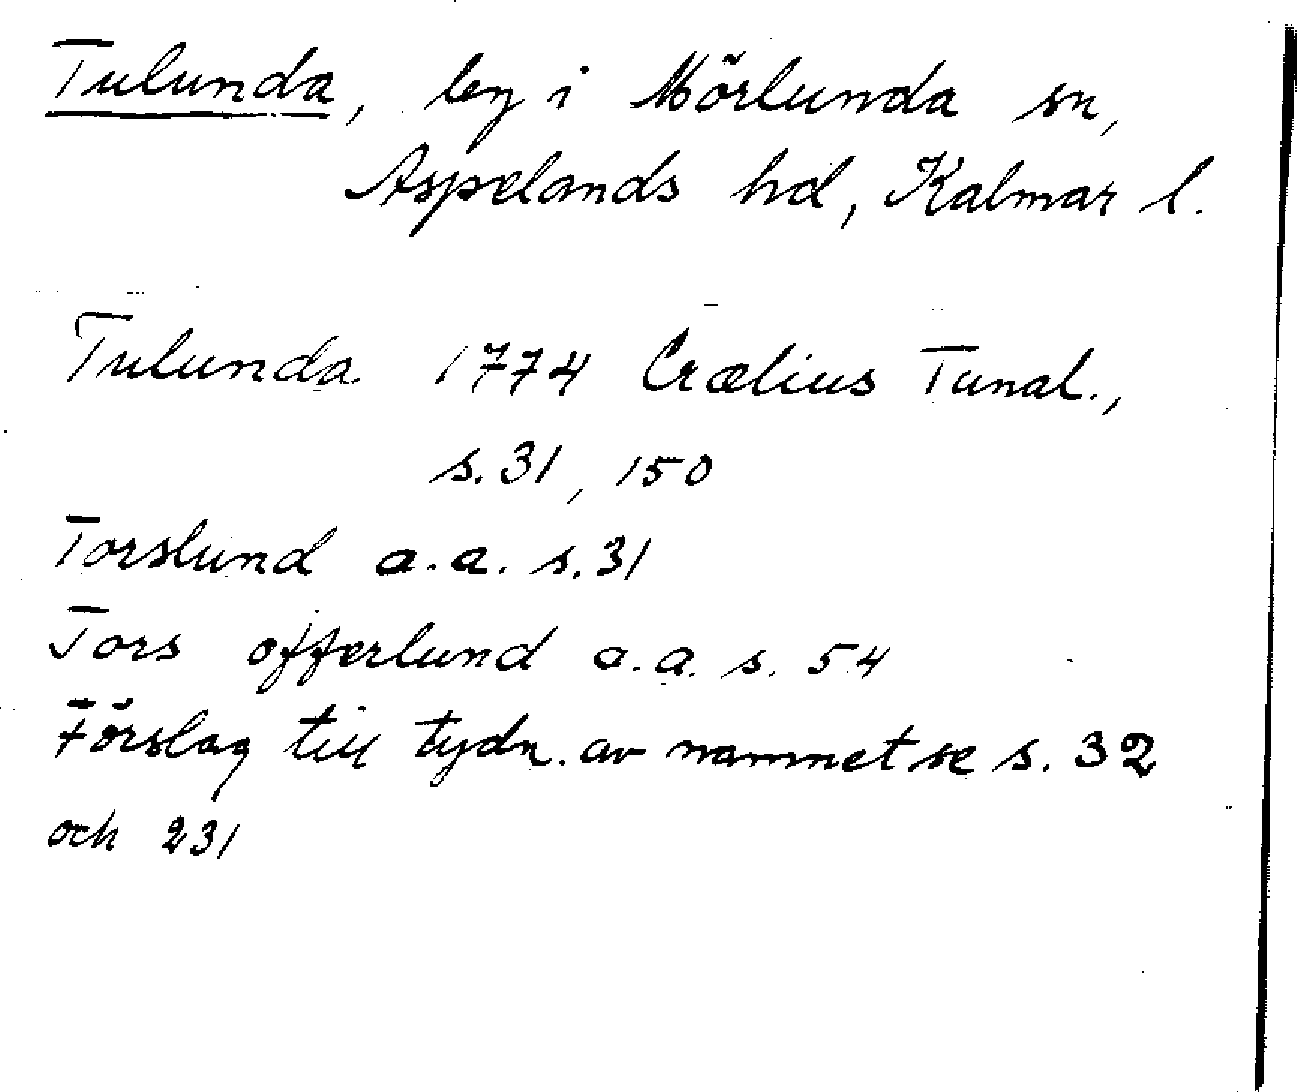 Tulunda, by i Mörlunda sn,
Aspelands hd, Kalmar l.
Tulunda 1774 Crælius Tunal.,
s. 31, 150
Torslund a.a. s. 31
Tors offerlund a.a. s. 54
Förslag till tydn. av namnet se s. 32
och 231